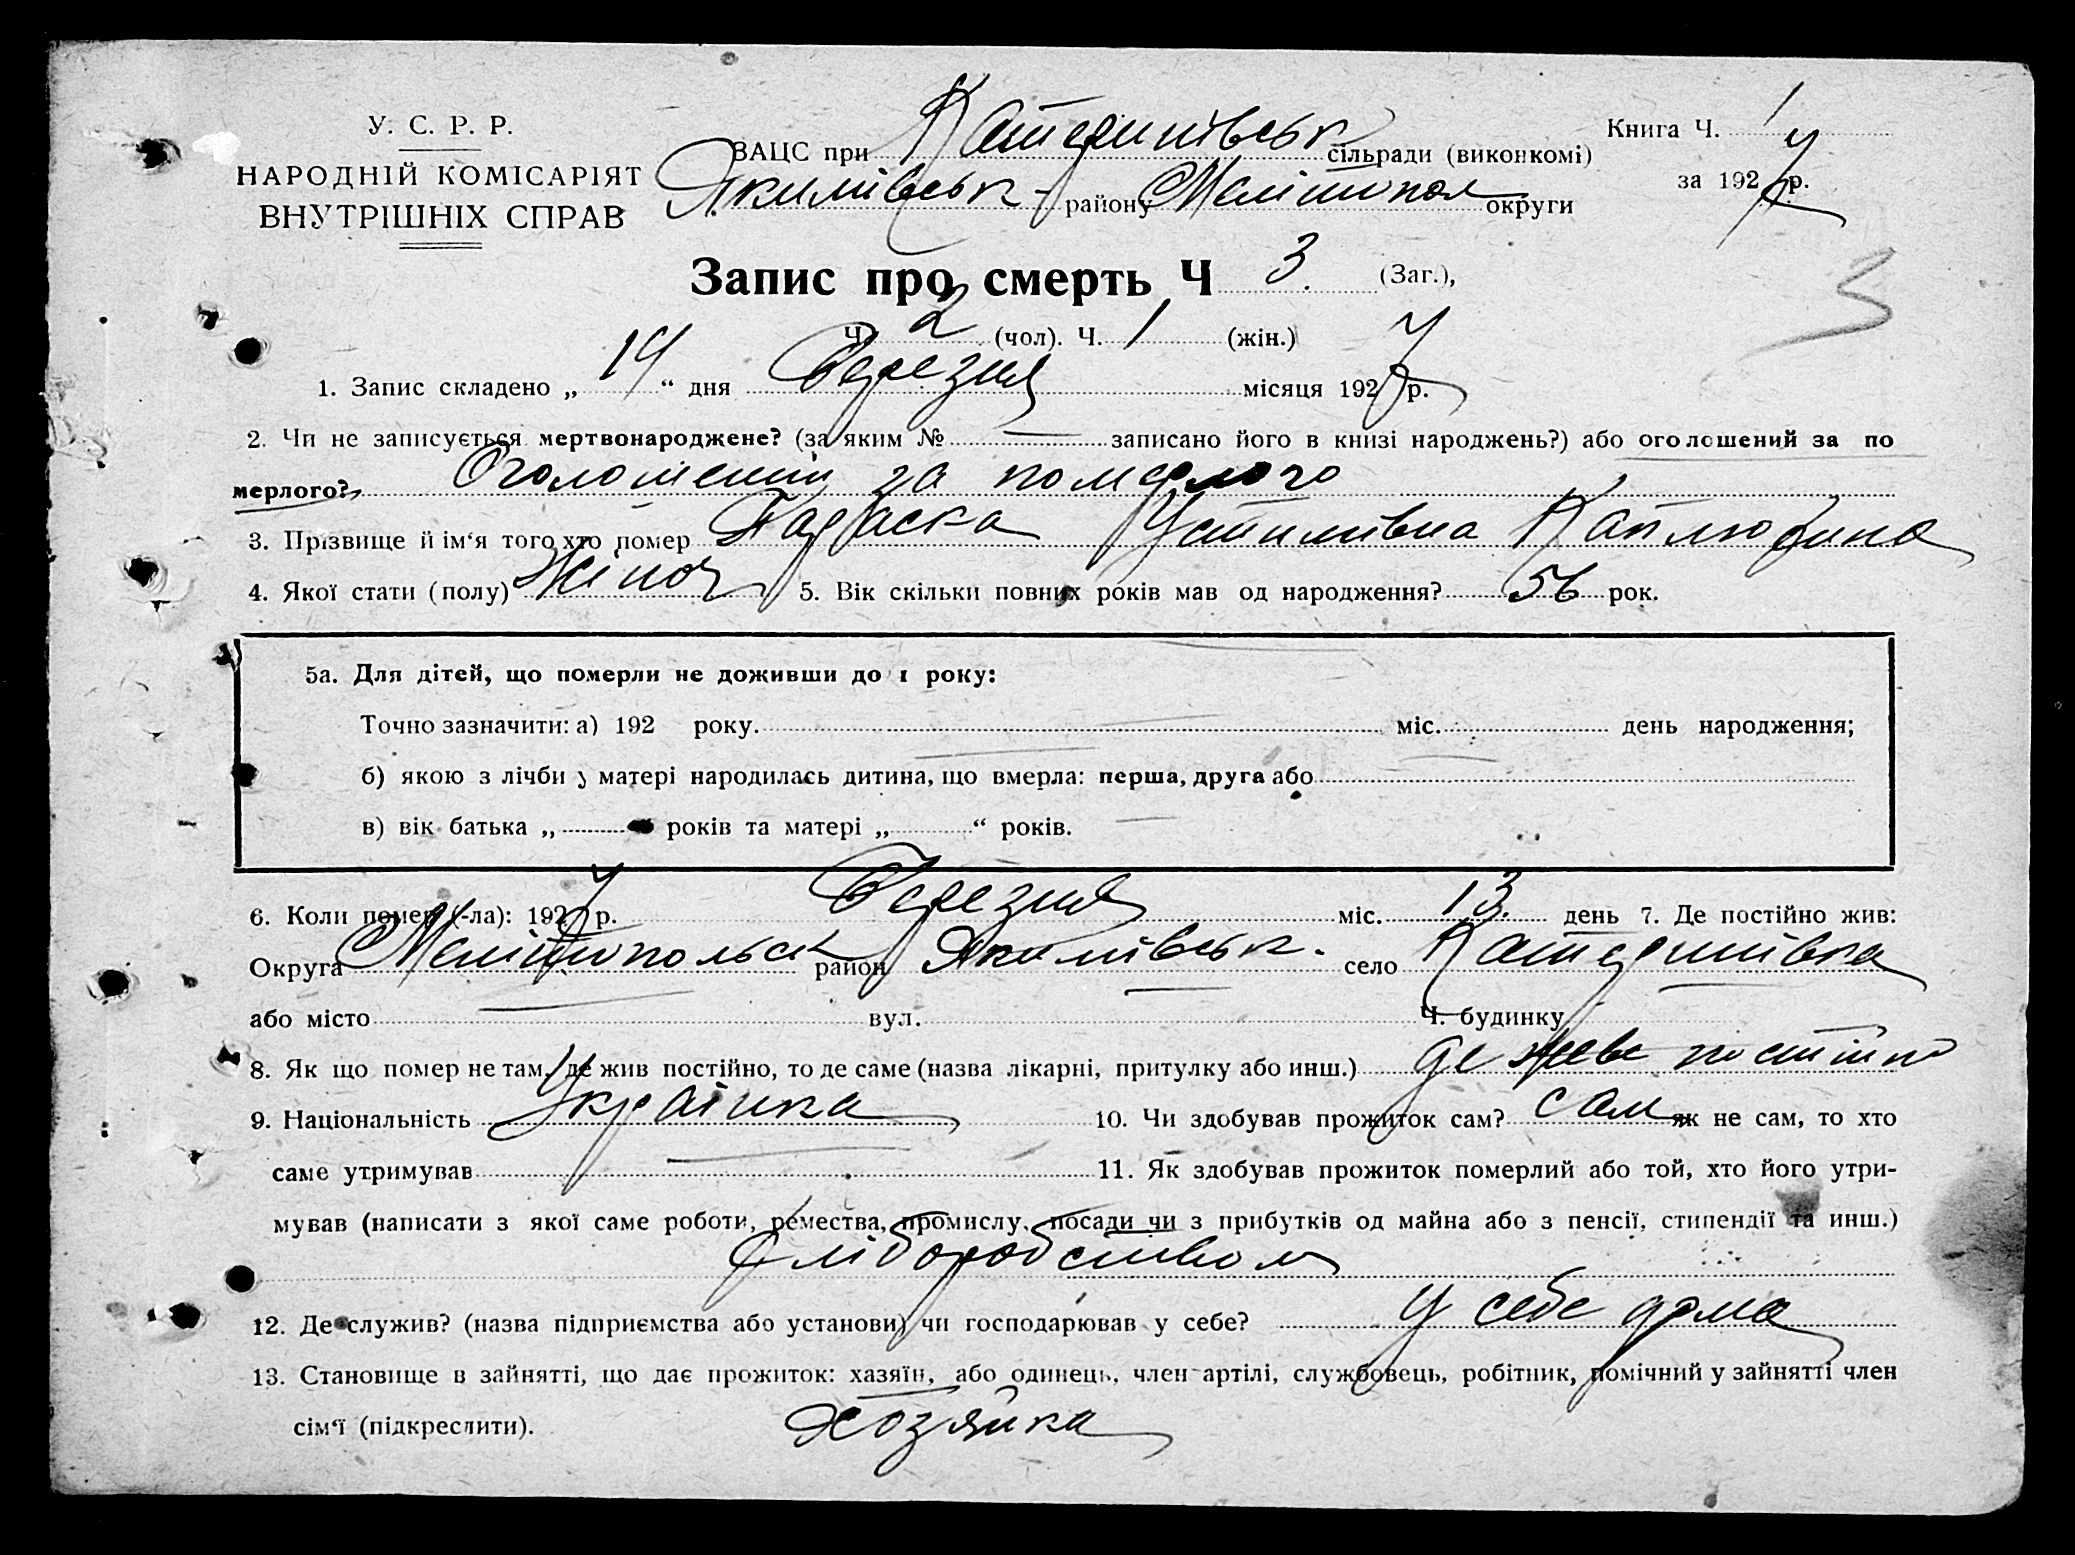 У. С. Р. Р.
НАРОДНІЙ КОМІСАРІЯТ
ВНУТРІШНІХ СПРАВ
ЗАЦС при Катеринівськ сільради (виконкомі)
Якимівськ- району Мелітопол округи
Книга Ч. 1
за 1927 р.
Запис про смерть Ч 3. (Заг.),
3
Ч. 2 (чол). Ч. 1 (жін.)
1. Запис складено „ 14 “ дня Березня місяця 1927 р.
2. Чи не записується мертвонароджене? (за яким № — записано його в книзі народжень?) або оголошений за по
мерлого? Оголошений за померлого
3. Прізвище й ім‘я того хто помер Параска Устимівна
4. Якої стати (полу) Жіноч 5. Вік скільки повних років мав од народження? 56 рок.
5а. Для дітей, що померли не доживши до 1 року:
Точно зазначити: а) 192 року. міс. день народження;
б) якою з лічби у матері народилась дитина, що вмерла: перша, друга або
в) вік батька „ років та матері „ “ років.
6. Коли помер (-ла): 1927 р. Березня міс. 13. день 7. Де постійно жив:
Округа Мелітопольськ район Якимівськ. село Катеринівка
або місто вул. Ч. будинку
8. Як що помер не там, де жив постійно, то де саме (назва лікарні, притулку або инш.) де жеве постійно
9. Національність Українка 10. Чи здобував прожиток сам? сам як не сам, то хто
саме утримував 11. Як здобував прожиток померлий або той, хто його утри-
мував (написати з якої саме роботи, ремества, промислу, посади чи з прибутків од майна або з пенсії, стипендії та инш.)
хліборобством
12. Де служив? (назва підприємства або установи) чи господарював у себе? у себе дома
13. Становище в зайнятті, що дає прожиток: хазяїн, або одинець, член артілі, службовець, робітник, помічний у зайнятті член
сім‘ї (підкреслити). Хозяйка